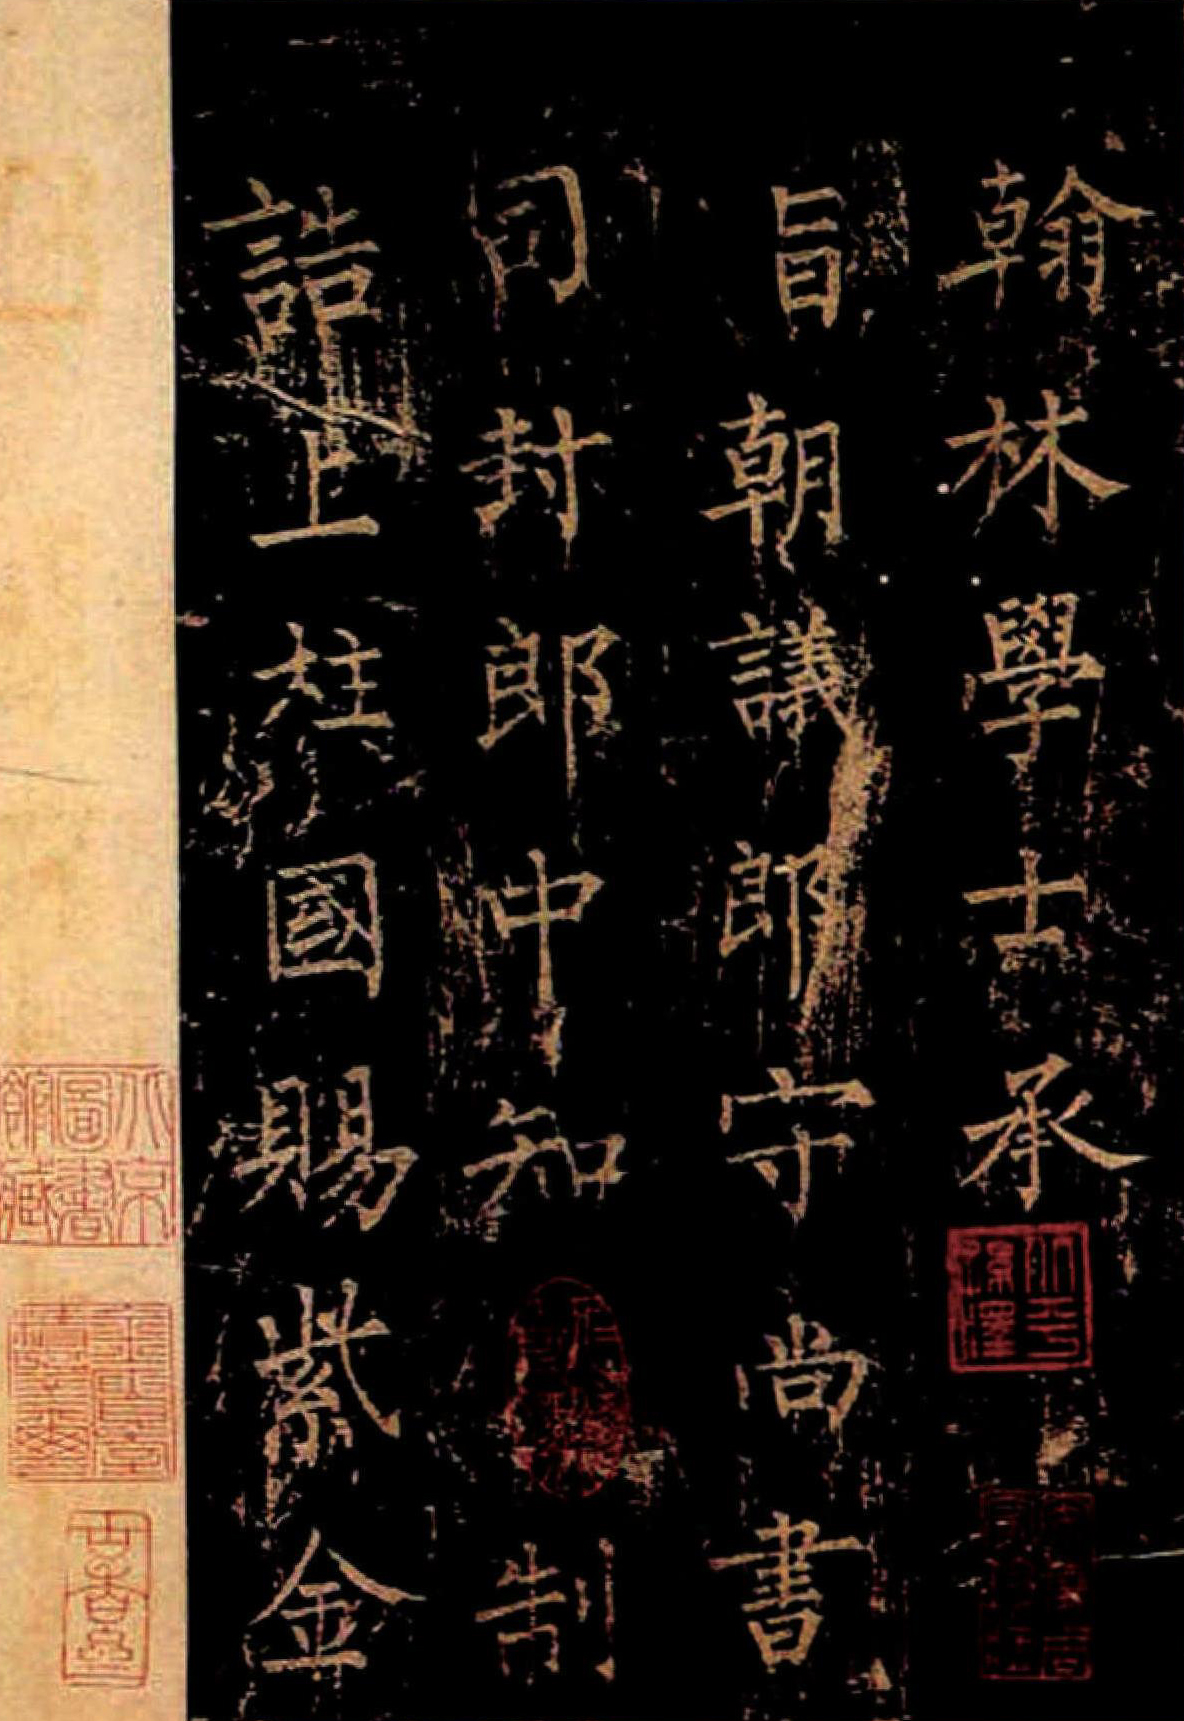 翰林學士承
旨朝議郎守尚書
司封郎中知制
誥上柱國賜紫金
北京圖書館藏